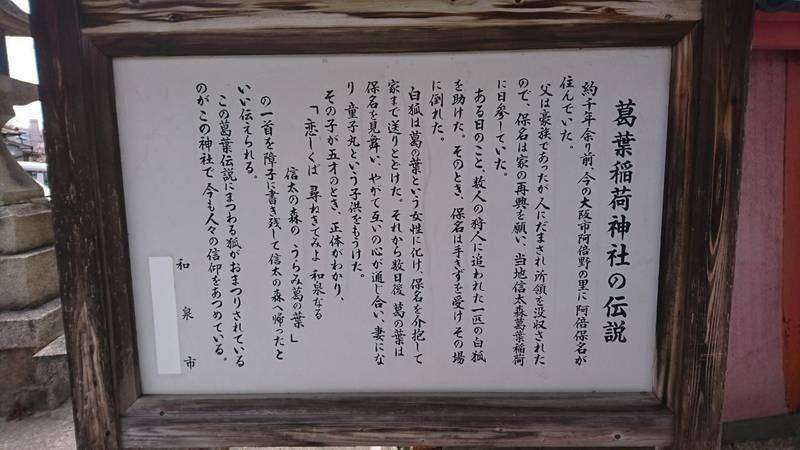 葛葉稲荷神社の伝説
約千年余り前、今の大阪市阿倍野の里に 阿倍保名が
住んでいた。
父は豪族であったが人にだまされ所領を没収された
ので、保名は家の再興を願い、当地信太森葛葉稲荷
に日参していた。
ある日のこと、数人の狩人に追われた一匹の白狐
を助けた。そのとき、保名は手きずを受け その場
に倒れた。
白狐は葛の葉という女性に化け、保名を介抱して
家まで送りとどけた。それから数日後 葛の葉は
保名を見舞い、やがて互いの心が通し合い、妻にな
り 童子丸という子供をもうけた。
その子が五才のとき、正体がわかり、
「恋しくば 尋ねきてみよ 和泉なる
信太の森の うらみ葛の葉」
の一首を障子に書き残して信太の森へ帰ったと
いい伝えられる。
この葛葉伝説にまつわる狐がおまつりされている
のがこの神社で、今も人々の信仰をあつめている。
和泉市